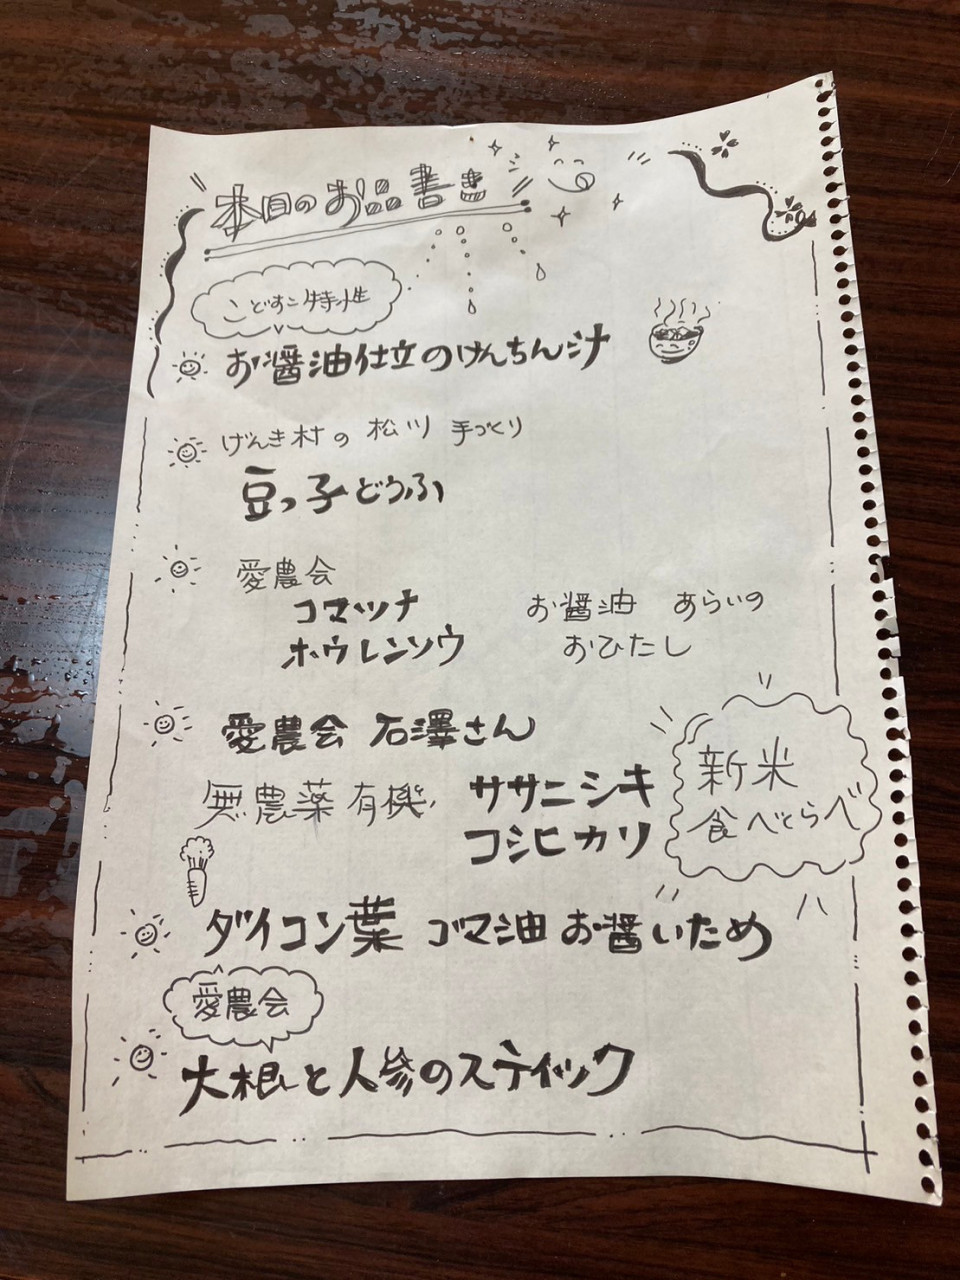 本日のお品書き
こどすこ特性
お醤油仕立のけんちん汁
げんき村の 松川 手づくり
豆っ子どうふ
愛農会
コマツナ
ホウレンソウ
お醤油 あらいの
おひたし
愛農会 石澤さん
無農薬有機
ササニシキ
コシヒカリ
新米
食べとらべ
ダイコン葉 ゴマ油 お醤いため
愛農会
大根と人参のスティック